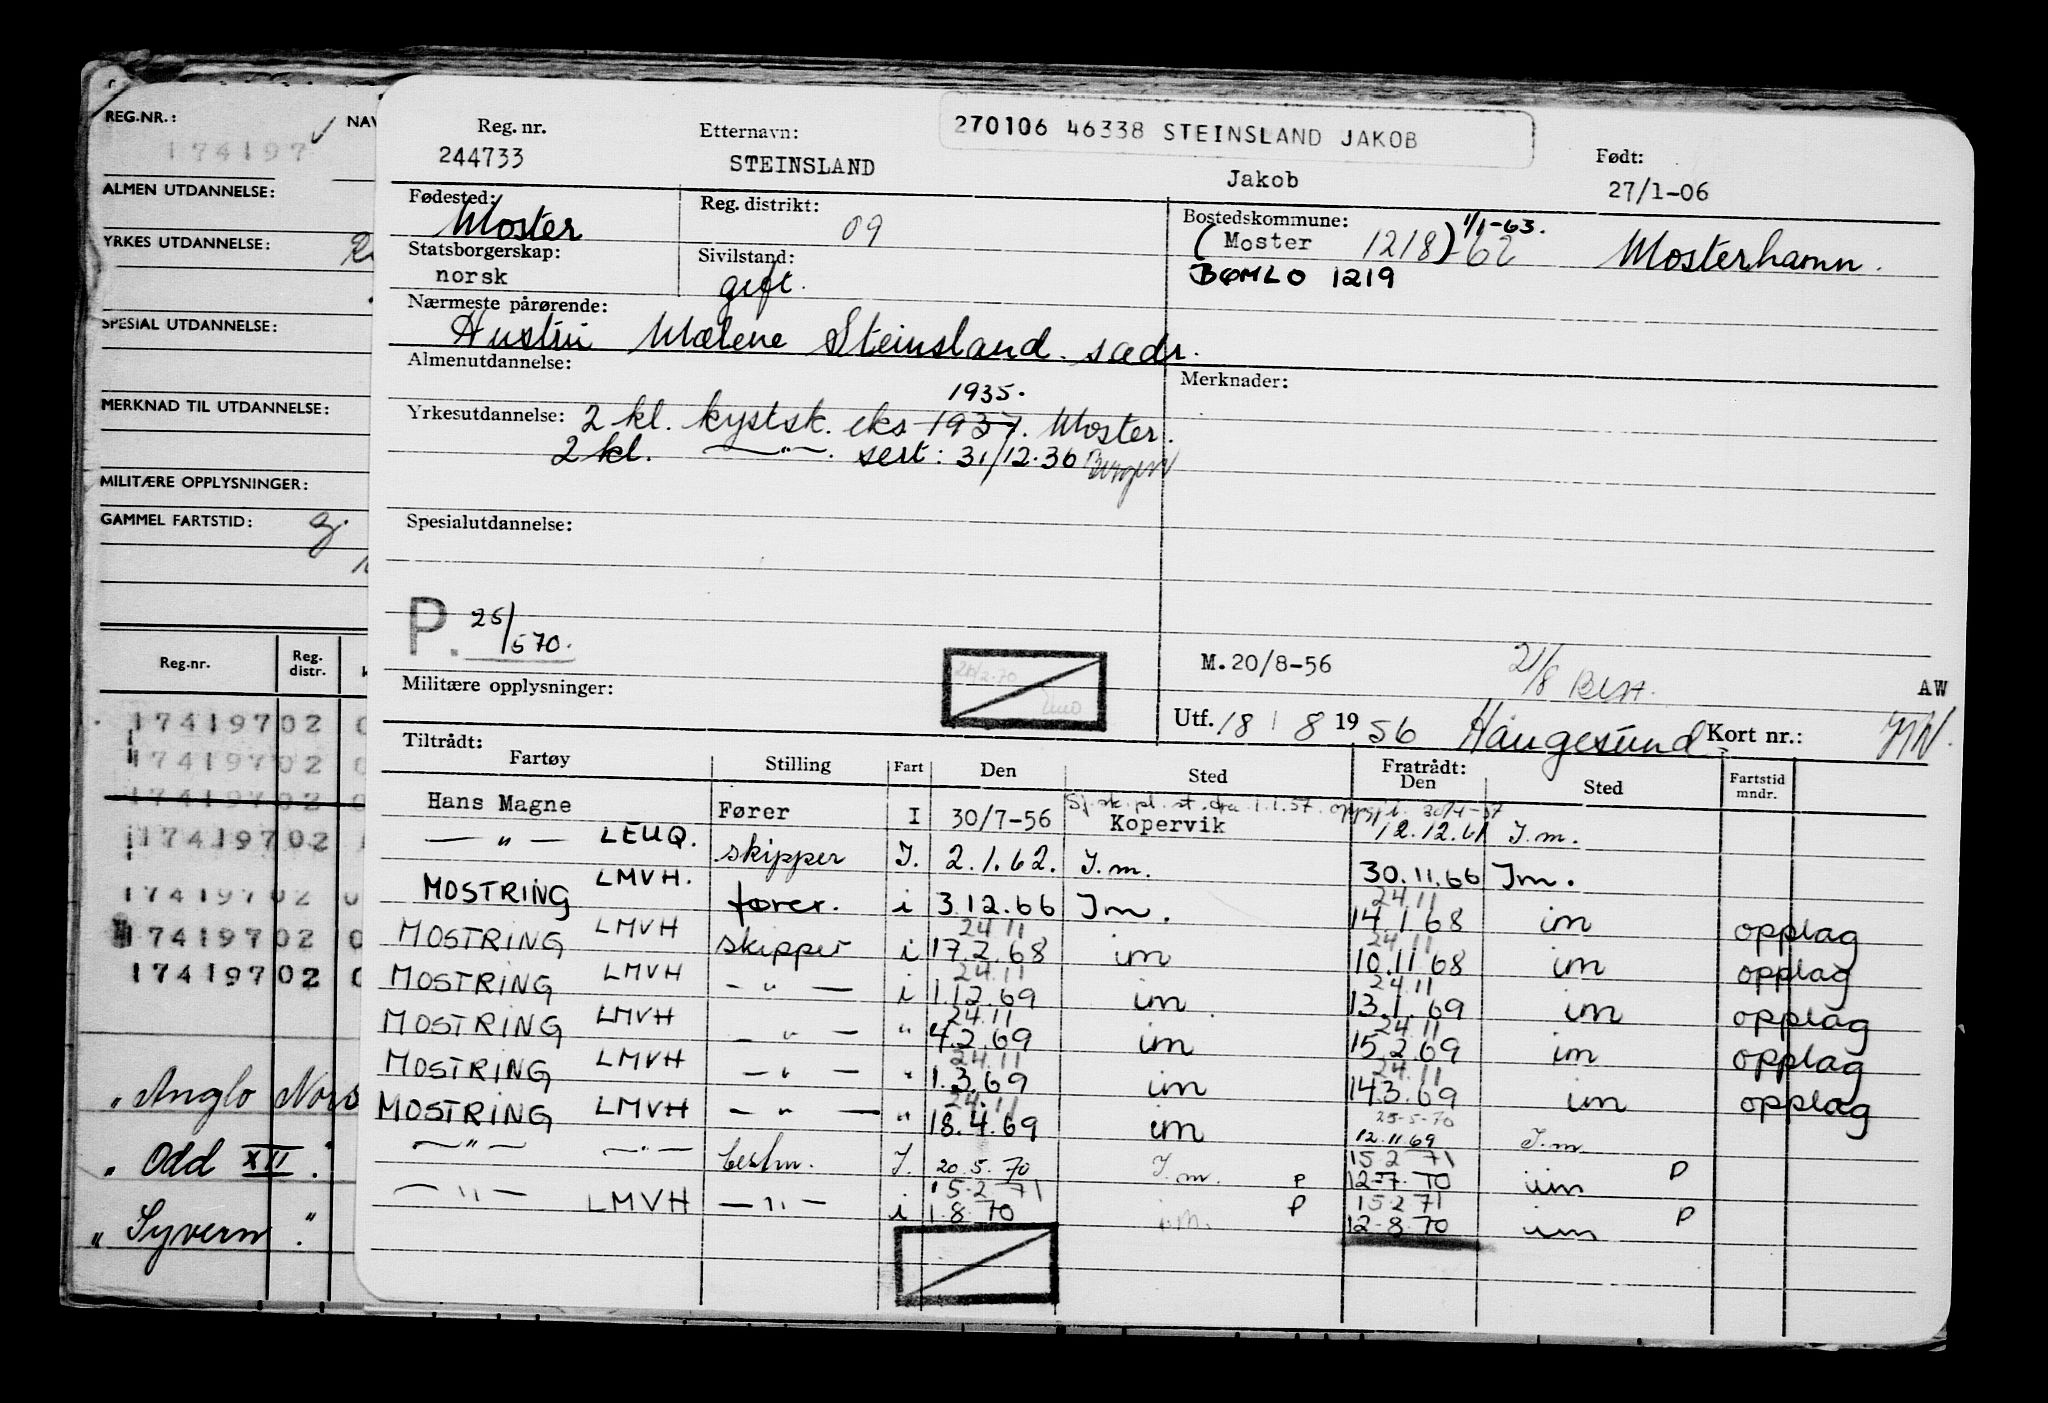 REG.NR.:
NAV
174197
ALMEN UTDANNELSE:
YRKES UTDANNELSE:
SPESIAL UTDANNELSE:
MERKNAD TIL UTDANNELSE:
MILITÆRE OPPLYSNINGER:
GAMMEL FARTSTID:
Reg.nr. Reg. distr.
174197 02
174197 02
174197 02
174197 02
174197 02
174197 02
174197 02
" Anglo Nors
" Odd XII."
" Syvern "
270106 46338 STEINSLAND JAKOB
Reg. nr. Etternavn: Født:
244733 STEINSLAND Jakob 27/1-06
Fødested: Moster
Reg. distrikt: 09
Bostedskommune: 1/1-63.
(Moster 1218) 62 Mosterhamn.
BØMLO 1219
Statsborgerskap: norsk
Sivilstand: gift.
Nærmeste pårørende:
Hustru Malene Steinsland. sædr.
Almenutdannelse:
Merknader:
1935.
Yrkesutdannelse: 2 kl. kystsk. eks 1937. Moster.
2 kl. —"—. sert: 31/12.36 Bergen
Spesialutdannelse:
P. 25/570.
M. 20/8-56 21/8 Best. AW
Militære opplysninger:
Utf. 18/8 1956 Haugesund Kort nr.:
Tiltrådt: Fratrådt:
Fartøy Stilling Fart Den Sted Den Sted Fartstid mndr.
Sj.sk.pl.st. fra 1.1.57. oppgj. 30/4-57
Hans Magne Fører I 30/7-56 Kopervik 12.12.61 I.m.
—"— LEUQ. skipper I. 2.1.62. I.m. 30.11.66 Im.
MOSTRING LMVH. fører. i 3.12.66 Im. 24.11 14.1.68 im opplag
MOSTRING LMVH skipper i 24.11 17.2.68 im 24.11 10.11.68 im opplag
MOSTRING LMVH —"— i 24.11 1.12.69 im 24.11 13.1.69 im opplag
MOSTRING LMVH —"— " 24.11 4.2.69 im 24.11 15.2.69 im opplag
MOSTRING LMVH —"— " 24.11 1.3.69 im 24.11 14.3.69 im opplag
MOSTRING LMVH —"— " 24.11 18.4.69 im 25-5-70 12.11.69 I.m.
—"— —"— bestm. I. 20.5.70 I.m. P 15.2 71 12-7.70 im P
—"— LMVH —"— i 15.2 71 1.8.70 im. P 15.2 71 12-8.70 im P